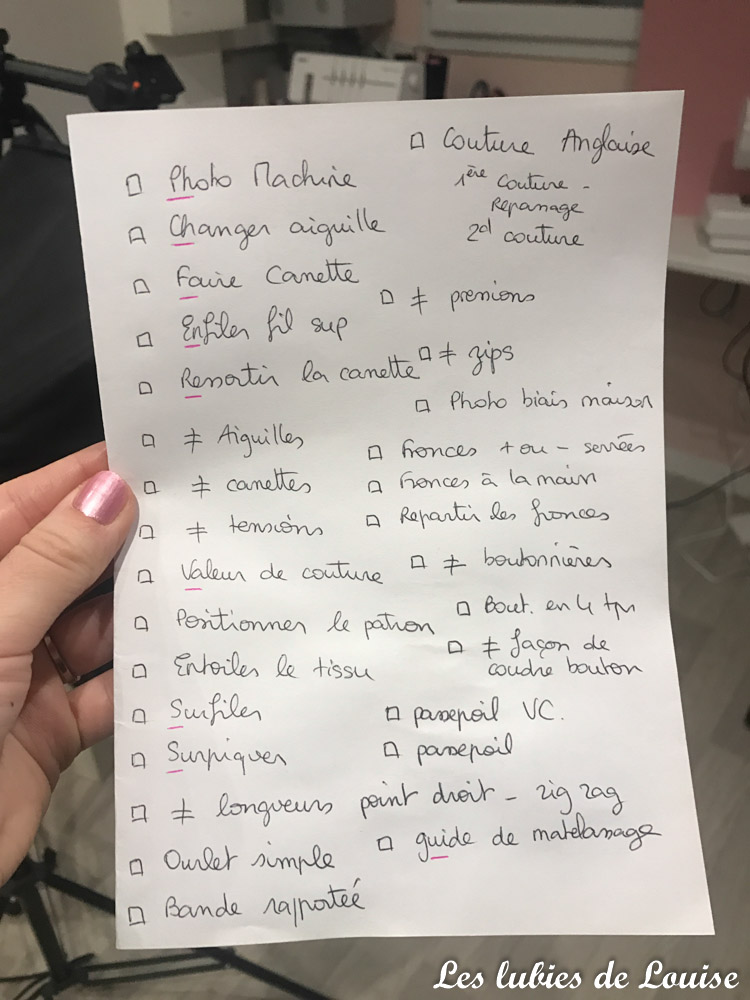 □ Photo Machine
□ Changer aiguille
□ Faire Canette
□ Enfiler fil sup
□ Ressortir la canette
□ ≠ Aiguilles
□ ≠ canettes
□ ≠ tensions
□ Valeur de couture
□ Positionner le patron
□ Entoiler le tissu
□ Surfiler
□ Surpiquer
□ ≠ longueurs point droit - zig zag
□ Ourlet simple
□ Bande rapporteé
□ Couture Anglaise
1ère couture -
Repassage
2d couture
□ ≠ pressions
□ ≠ zips
□ Photo biais maison
□ fronces + ou - serrées
□ fronces à la main
□ Repartir les fronces
□ ≠ boutonnières
□ Bout. en 4 tps
□ ≠ façon de
coudre bouton
□ passepoil VC.
□ passepoil
□ guide de matelassage
Les lubies de Louise